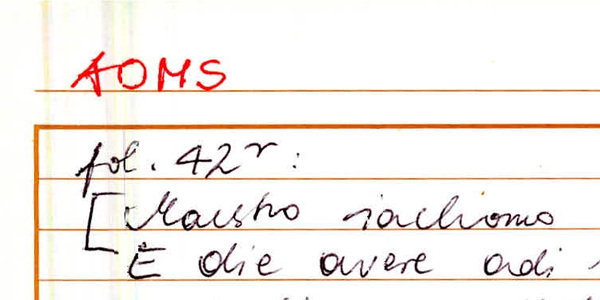 AOMS
fol. 42r:
[Maestro iachomo
E die avere adi